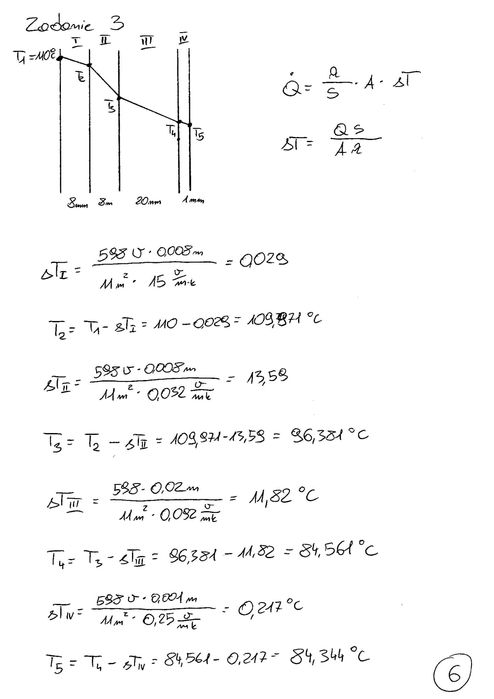 Zadanie 3
I II III IV
T1=110°C
T2
T3
T4
T5
8mm 8m 20mm 1mm
Q̇ = λ/S · A · ΔT
ΔT = QS/Aλ
ΔT_I = 598 W · 0.008m / 11m² · 15 W/m·k = 0,029
T2 = T1 - ΔT_I = 110 - 0,029 = 109,971 °C
ΔT_II = 598 W · 0.008m / 11m² · 0,032 W/mk = 13,59
T3 = T2 - ΔT_II = 109,971 - 13,59 = 96,381 °C
ΔT_III = 598 · 0,02m / 11m² · 0,092 W/mk = 11,82 °C
T4 = T3 - ΔT_III = 96,381 - 11,82 = 84,561 °C
ΔT_IV = 598 W · 0.001m / 11m² · 0,25 W/mk = 0,217 °C
T5 = T4 - ΔT_IV = 84,561 - 0,217 = 84,344 °C
6